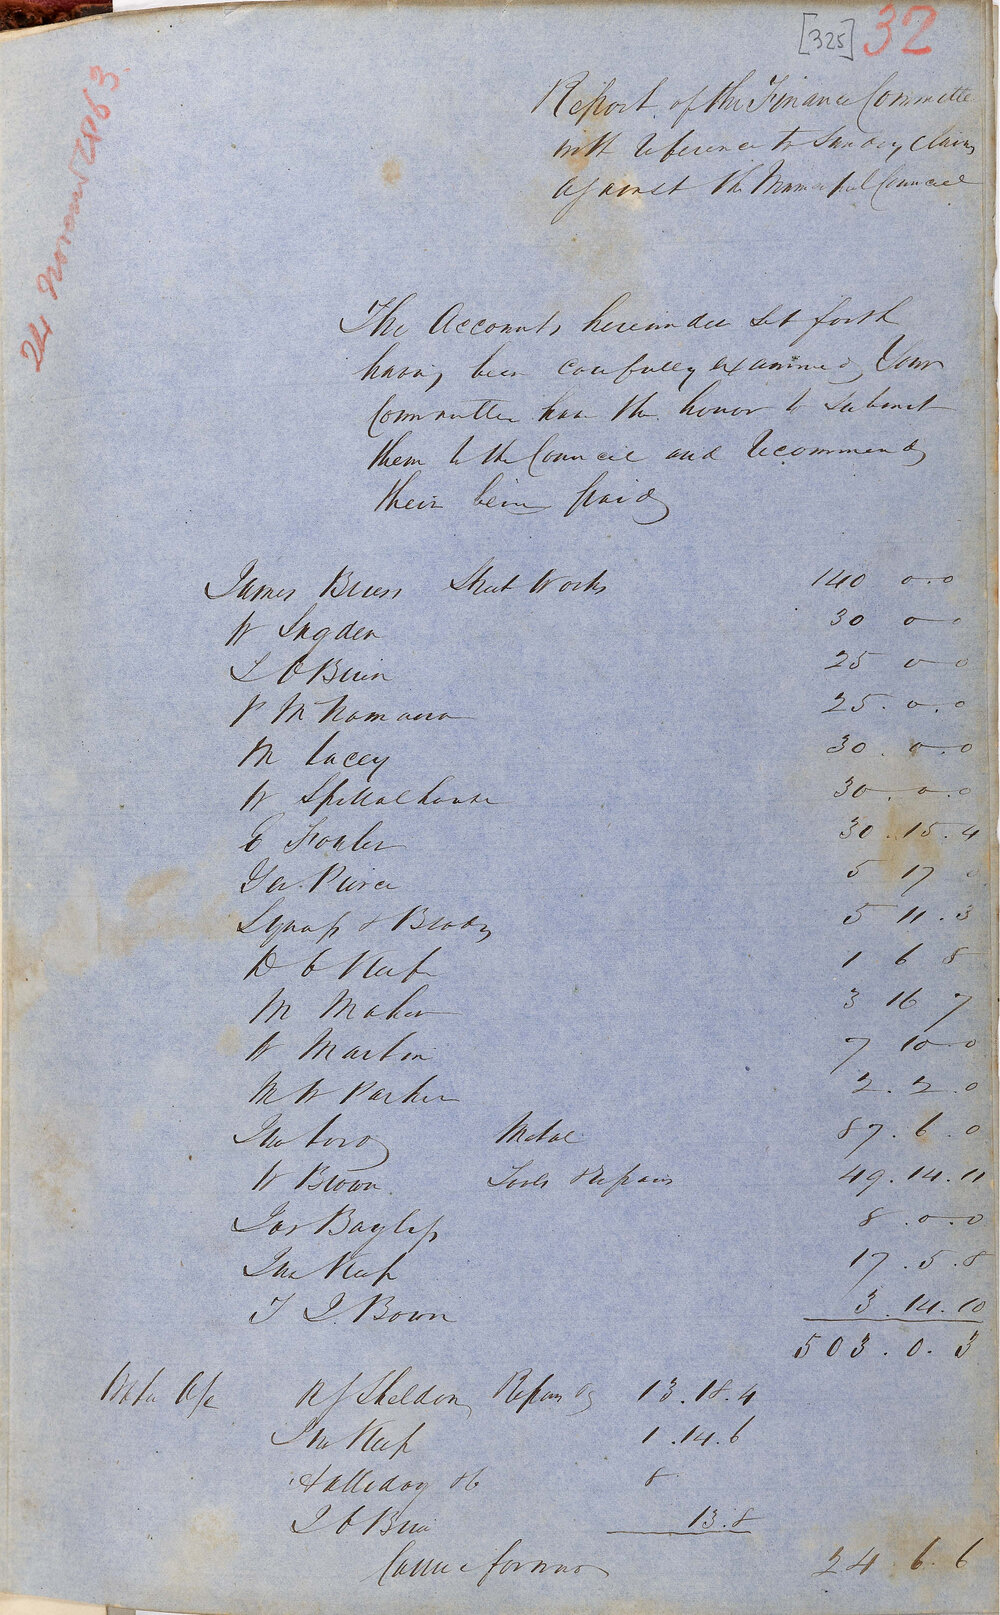 [325] 32
24 November 1863
Report of the Finance Committee
with reference to Sundry claims
against the Municipal Council
The Accounts hereunder set forth
having been carefully examined, Your
Committee has the honor to submit
them to the Council and recommends
their being paid
James Street Works 140 0.0
W Sugden 30 0 0
O Brien 25 0 0
P McNamara 25.0.0
M Lacey 30.0.0
W Spittalhouse 30.0.0
E Fowler 30.15.4
Pierce 5 17 0
& Brady 5 11.3
D O Keefe 1 6 8
M Maher 3 16 7
W Martin 7 10 0
M W Parker 2.2.0
Jno Metal 87.6.0
W Brown Tools & Repairs 49.14.11
Jas Bayliss 8.0.0
Jno Keep 17.5.8
T J. Bown 3.14.10
503.0.3
Water A/c R J Sheldon Repairs 13.18.4
Jno Keep 1.14.6
Halliday & Co 8
O Brien 13.8
Carried forward 24.6.6